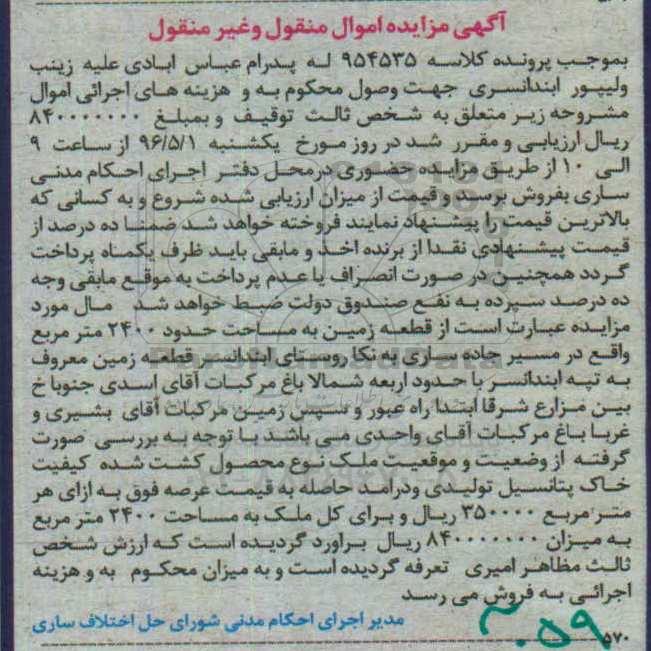 آگهی مزایده اموال منقول وغیر منقول
بموجب پرونده کلاسه ۹۵۴۵۳۵ له پدرام عباس ابادی علیه زینب
ولیپور ابندانسری جهت وصول محکوم به و هزینه های اجرائی اموال
مشروحه زیر متعلق به شخص ثالث توقیف و بمبلغ ۸۴۰۰۰۰۰۰۰
ریال ارزیابی و مقرر شد در روز مورخ یکشنبه ۹۶/۵/۱ از ساعت ۹
الی ۱۰ از طریق مزایده حضوری در محل دفتر اجرای احکام مدنی
ساری بفروش برسد و قیمت از میزان ارزیابی شده شروع و به کسانی که
بالاترین قیمت را پیشنهاد نمایند فروخته خواهد شد ضمنا ده درصد از
قیمت پیشنهادی نقدا از برنده اخذ و مابقی باید ظرف یکماه پرداخت
گردد همچنین در صورت انصراف یا عدم پرداخت به موقع مابقی وجه
ده درصد سپرده به نفع صندوق دولت ضبط خواهد شد مال مورد
مزایده عبارت است از قطعه زمین به مساحت حدود ۲۴۰۰ متر مربع
واقع در مسیر جاده ساری به نکا روستای ابندانسر قطعه زمین معروف
به تپه ابندانسر با حدود اربعه شمالا باغ مرکبات آقای اسدی جنوبا خ
بین مزارع شرقا ابتدا راه عبور و سپس زمین مرکبات آقای بشیری و
غربا باغ مرکبات آقای واحدی می باشد با توجه به بررسی صورت
گرفته از وضعیت و موقعیت ملک نوع محصول کشت شده کیفیت
خاک پتانسیل تولیدی ودرامد حاصله به قیمت عرصه فوق به ازای هر
متر مربع ۳۵۰۰۰۰ ریال و برای کل ملک به مساحت ۲۴۰۰ متر مربع
به میزان ۸۴۰۰۰۰۰۰۰ ریال براورد گردیده است که ارزش شخص
ثالث مظاهر امیری تعرفه گردیده است و به میزان محکوم به و هزینه
اجرائی به فروش می رسد
مدیر اجرای احکام مدنی شورای حل اختلاف ساری
۵۷۰